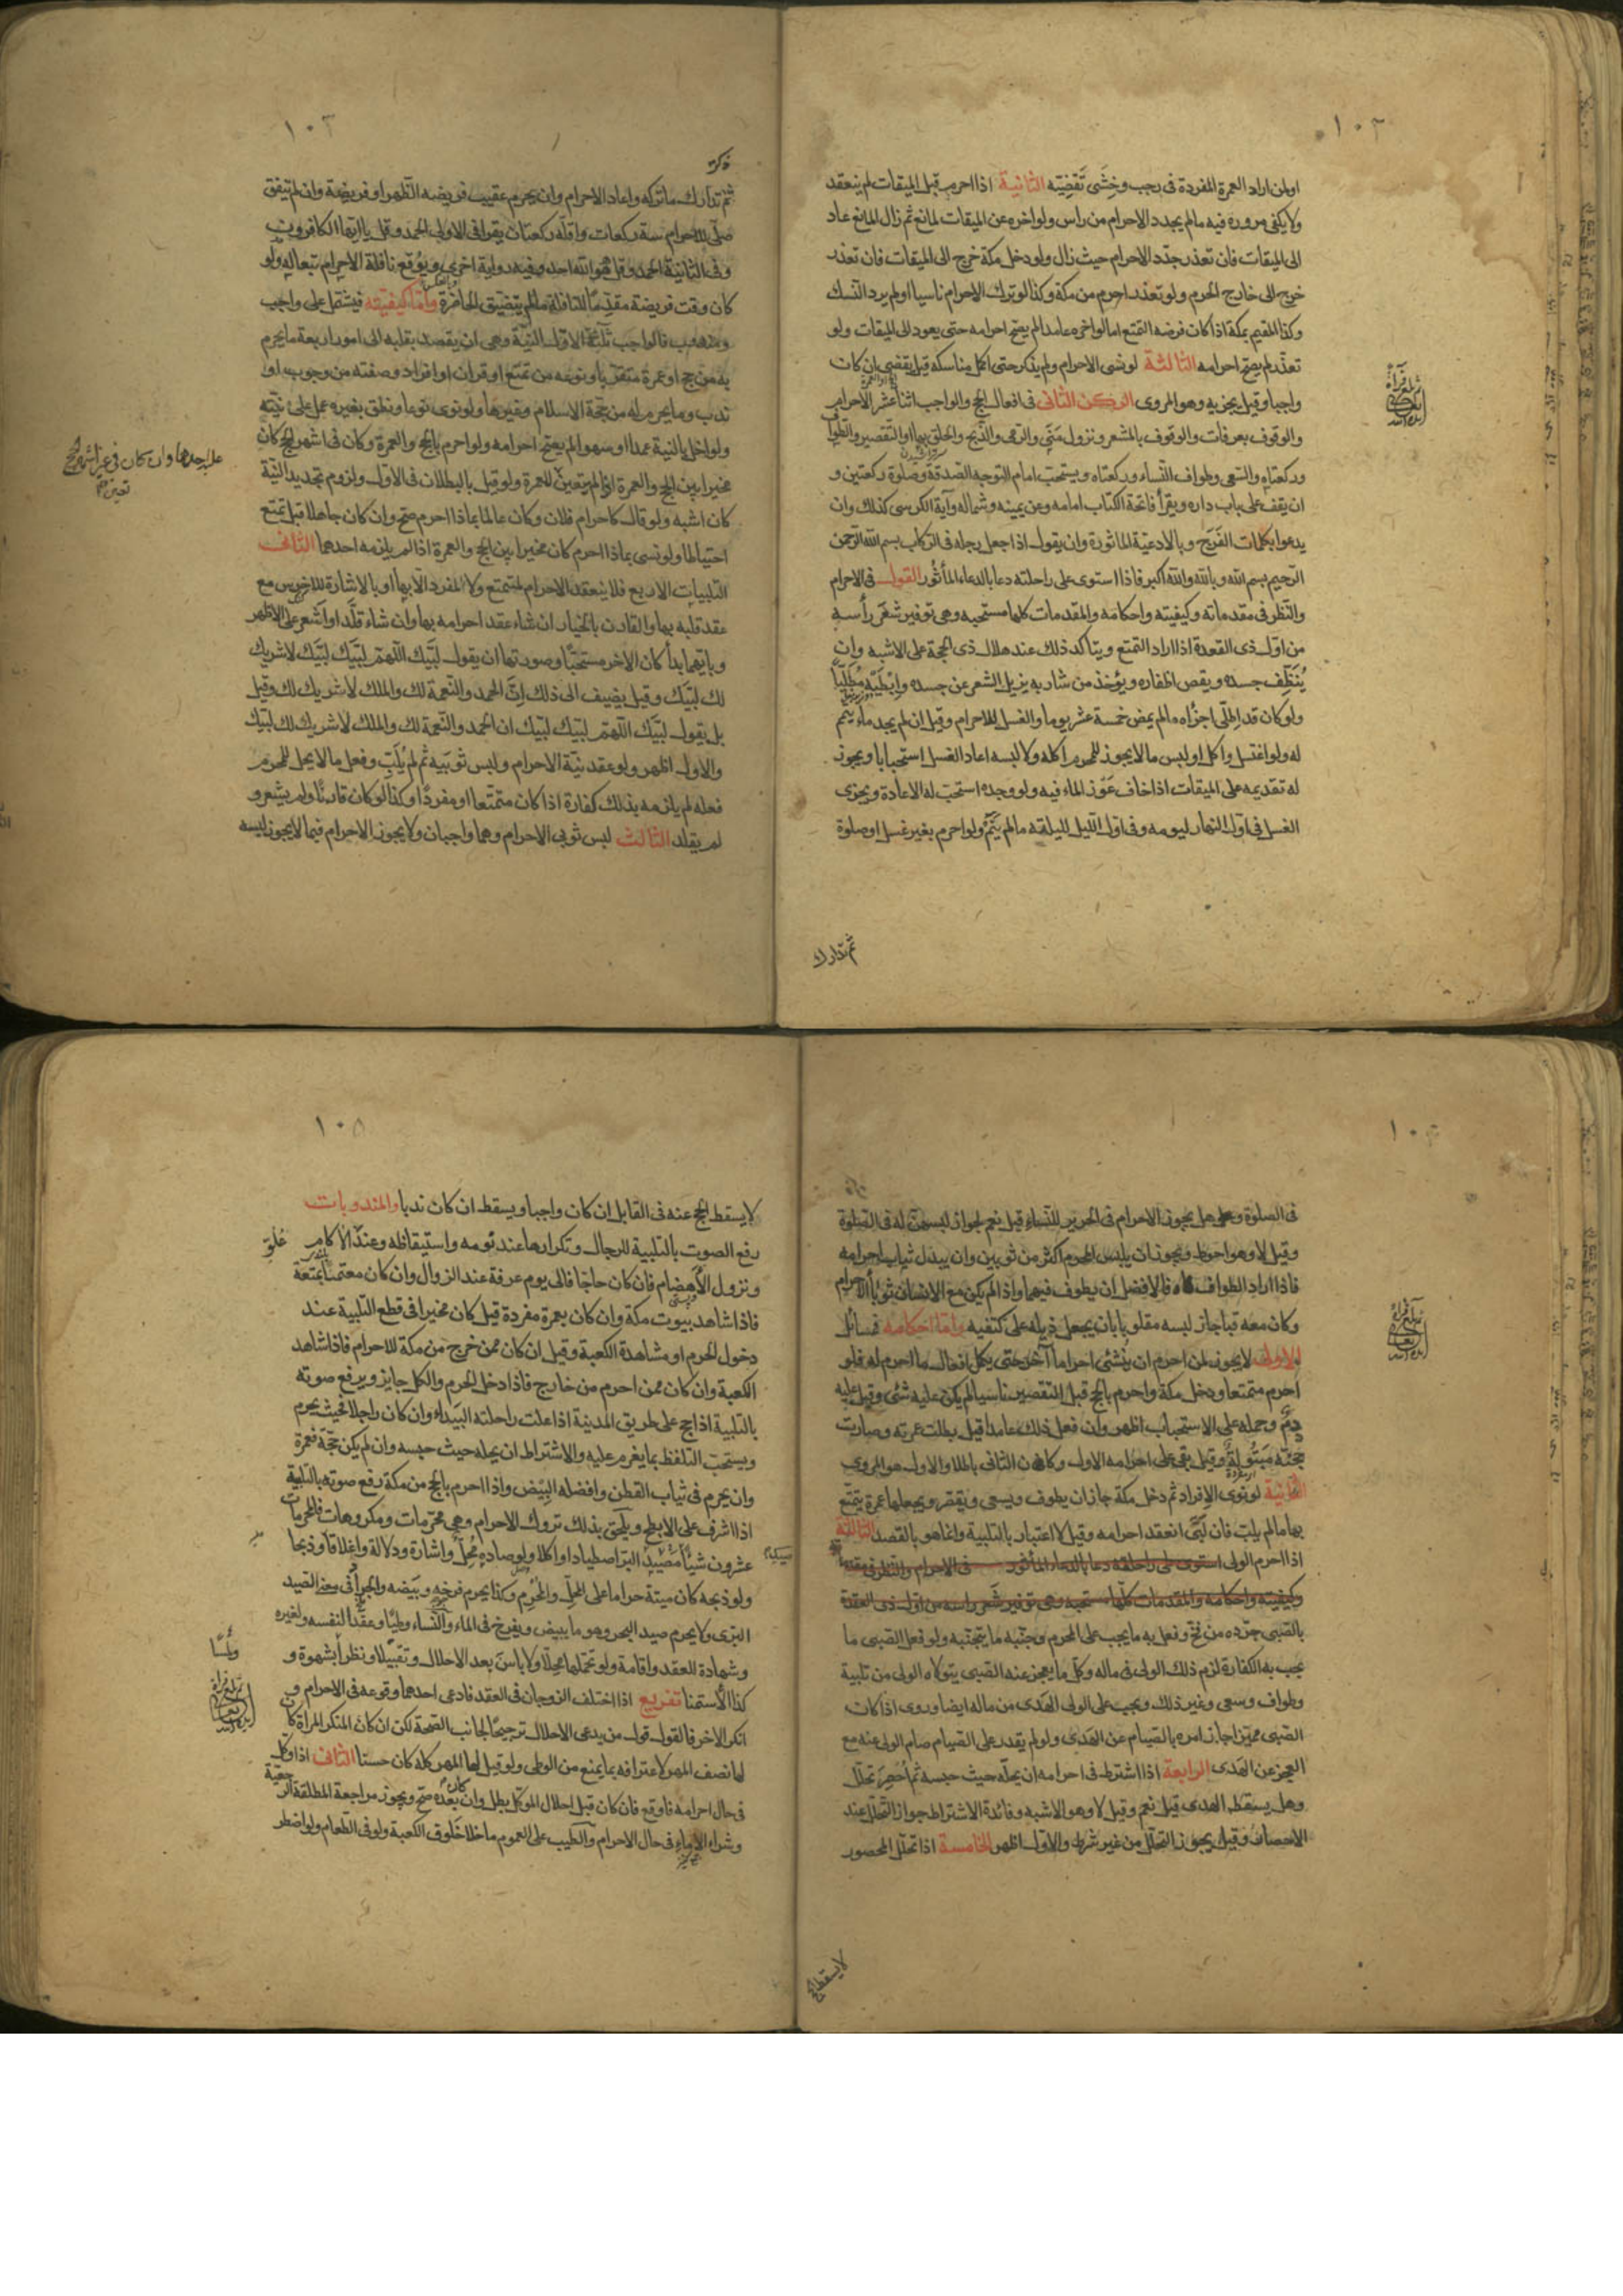 ١٠٢
اولمن اراد العمرة المفردة فى رجب وخشى تقضيته الثانية اذا احرم قبل الميقات لم ينعقد
ولا يكفى مروره فيه ما لم يجدد الاحرام من راس ولو اخره عن الميقات لمانع ثم زال المانع عاد
الى الميقات فان تعذر جدد الاحرام حيث زال ولو دخل مكة خرج الى الميقات فان تعذر
خرج الى خارج الحرم ولو تعذر احرم من مكة وكذا لو ترك الاحرام ناسيا او لم يرد النسك
وكذا المقيم بمكة اذا كان فرضه التمتع اما لو اخره عامدا لم يصح احرامه حتى يعود الى الميقات ولو
تعذر لم يصح احرامه الثالثة لو نسى الاحرام ولم يذكر حتى اكمل مناسكه قيل يقضى ان كان
واجبا وقيل يجزيه وهو المروى الركن الثانى فى افعال الحج والواجب اثنا عشر الاحرام
والوقوف بعرفات والوقوف بالمشعر ونزول منى والرمى والذبح والحلق بها او التقصير والطواف
وركعتاه والسعى وطواف النساء وركعتاه ويستحب امام التوجه الصدقة وصلوة ركعتين و
ان يقف على باب داره ويقرأ فاتحة الكتاب امامه وعن يمينه وشماله وآية الكرسى كذلك وان
يدعوا بكلمات الفرج وبالادعية الماثورة وان يقول اذا جعل رجله فى الركاب بسم الله الرحمن
الرحيم بسم الله وبالله والله اكبر فاذا استوى على راحلته دعا بالدعاء المأثور القول فى الاحرام
والنظر فى مقدماته وكيفيته واحكامه والمقدمات كلها مستحبه وهى توفير شعر رأسه
من اول ذى القعدة اذا اراد التمتع ويتاكد ذلك عند هلال ذى الحجة على الاشبه وان
ينظف جسده ويقص اظفاره ويؤخذ من شاربه يزيل الشعر عن جسده وابطيه مطليا
ولو كان قد اطلى اجزاه ما لم يمض خمسة عشر يوما والغسل للاحرام وقيل ان لم يجد ماء يتيمم
له ولو اغتسل واكل او لبس ما لا يجوز للمحرم اكله ولا لبسه اعاد الغسل استحبابا ويجوز
له تقديمه على الميقات اذا خاف عوز الماء فيه ولو وجده استحب له الاعادة ويجزى
الغسل فى اول النهار ليومه وفى اول الليل لليلته ما لم ينم ولو احرم بغير غسل او صلوة
ثم تدارك
١٠٣
ذكر
ثم تدارك ما تركه واعاد الاحرام وان يحرم عقيب فريضه الظهر او فريضة وان لم يتفق
صلى للاحرام ستة ركعات واقله ركعتان يقرا فى الاولى الحمد وقل يا ايها الكافرون
وفى الثانية الحمد وقل هو الله احد وفيه رواية اخرى ويوقع نافلة الاحرام تبعا له ولو
كان وقت فريضة مقدما للنافلة ما لم يتضيق الحاضرة واما كيفيته فيشتمل على واجب
ومندوب فالواجب ثلثة الاول النية وهى ان يقصد بقلبه الى امور اربعة ما يحرم
به من حج او عمرة متقربا ونوعه من تمتع او قران او افراد وصفته من وجوب او
ندب وما يحرم له من حجة الاسلام وغيرها ولو نوى نوعا ونطق بغيره عمل على نيته
ولو اخل بالنية عمدا او سهوا لم يصح احرامه ولو احرم بالحج والعمرة وكان فى اشهر الحج كان
مخيرا بين الحج والعمرة اذا لم يتعين للعمرة ولو قيل بالبطلان فى الاول ولزوم تجديد النية
كان اشبه ولو قال كاحرام فلان وكان عالما بماذا احرم صح وان كان جاهلا قيل تمتع
احتياطا ولو نسى بماذا احرم كان مخيرا بين الحج والعمرة اذا لم يلزمه احدهما الثانى
التلبيات الاربع فلا ينعقد الاحرام لمتمتع ولا لمفرد الا بها او بالاشارة للاخرس مع
عقد قلبه بها والقارن بالخيار ان شاء عقد احرامه بها وان شاء قلد او اشعر على الاظهر
وبايهما بدأ كان الاخر مستحبا وصورتها ان يقول لبيك اللهم لبيك لبيك لا شريك
لك لبيك وقيل يضيف الى ذلك ان الحمد والنعمة لك والملك لا شريك لك وقيل
بل يقول لبيك اللهم لبيك لبيك ان الحمد والنعمة لك والملك لا شريك لك لبيك
والاول اظهر ولو عقد نية الاحرام ولبس ثوبيه ثم لم يلب وفعل ما لا يحل للمحرم
فعله لم يلزمه بذلك كفارة اذا كان متمتعا او مفردا وكذا لو كان قارنا ولم يشعر و
لم يقلد الثالث لبس ثوبى الاحرام وهما واجبان ولا يجوز الاحرام فيما لا يجوز لبسه
وان كان فى غير اشهر الحج
تعين
فى الصلوة وهل يجوز الاحرام فى الحرير للنساء قيل نعم لجواز لبسهن له فى الصلوة
وقيل لا وهو احوط ويجوز ان يلبس المحرم اكثر من ثوبين وان يبدل ثياب احرامه
فاذا اراد الطواف فالافضل ان يطوف فيهما واذا لم يكن مع الانسان ثوبا الاحرام
وكان معه قبا جاز لبسه مقلوبا بان يجعل ذيله على كتفيه واما احكامه فمسائل
الاولى لا يجوز لمن احرم ان ينشئ احراما آخر حتى يكمل افعال ما احرم له فلو
احرم متمتعا ودخل مكة واحرم بالحج قبل التقصير ناسيا لم يكن عليه شئ وقيل عليه
دم وحمله على الاستحباب اظهر وان فعل ذلك عامدا قيل بطلت عمرته وصارت
حجته مبتولة وقيل بقى على احرامه الاول وكان الثانى باطلا والاول هو المروى
الثانية لو نوى الافراد ثم دخل مكة جاز ان يطوف ويسعى ويقصر ويجعلها عمرة يتمتع
بها ما لم يلب فان لبى انعقد احرامه وقيل لا اعتبار بالتلبية وانما هو بالقصد الثالثة
اذا احرم الولى استوى على راحلته دعا بالدعاء المأثور فى الاحرام والنظر فى مقدماته
وكيفيته واحكامه والمقدمات كلها مستحبه وهى توفير شعر راسه من اول ذى القعدة
بالصبى جرده من فخ وفعل به ما يجب على المحرم وجنبه ما يتجنبه ولو فعل الصبى ما
يجب به الكفارة لزم ذلك الولى فى ماله وكل ما يعجز عنه الصبى يتولاه الولى من تلبية
وطواف وسعى وغير ذلك ويجب على الولى الهدى من ماله ايضا وروى اذا كان
الصبى مميزا جاز امره بالصيام عن الهدى ولو لم يقدر على الصيام صام الولى عنه مع
العجز عن الهدى الرابعة اذا اشترط فى احرامه ان يحله حيث حبسه ثم احصر تحلل
وهل يسقط الهدى قيل نعم وقيل لا وهو الاشبه وفائدة الاشتراط جواز التحلل عند
الاحصار وقيل يجوز التحلل من غير شرط والاول اظهر الخامسة اذا تحلل المحصور
لا يسقط
١٠٥
لا يسقط الحج عنه فى القابل ان كان واجبا ويسقط ان كان ندبا والمندوبات
رفع الصوت بالتلبية للرجال وتكرارها عند نومه واستيقاظه وعند الآكام
ونزول الأهضام فان كان حاجا فالى يوم عرفة عند الزوال وان كان معتمرا بمتعة
فاذا شاهد بيوت مكة وان كان بعمرة مفردة قيل كان مخيرا فى قطع التلبية عند
دخول الحرم او مشاهدة الكعبة وقيل ان كان ممن خرج من مكة للاحرام فاذا شاهد
الكعبة وان كان ممن احرم من خارج فاذا دخل الحرم والكل جايز ويرفع صوته
بالتلبية اذا حج على طريق المدينة اذا علت راحلته البيداء وان كان راجلا فحيث يحرم
ويستحب التلفظ بما يعزم عليه والاشتراط ان يحله حيث حبسه وان لم يكن حجة فعمرة
وان يحرم فى ثياب القطن وافضله البيض واذا احرم بالحج من مكة رفع صوته بالتلبية
اذا اشرف على الابطح ويلحق بذلك تروك الاحرام وهى محرمات ومكروهات فالمحرمات
عشرون شيئا مصيد البر اصطيادا واكلا ولو صاده محل واشارة ودلالة واغلاقا وذبحا
ولو ذبحه كان ميتة حراما على المحل والمحرم وكذا يحرم فرخه وبيضه والجراد فى معنى الصيد
البرى ولا يحرم صيد البحر وهو ما يبيض ويفرخ فى الماء والنساء وطيا وعقدا لنفسه ولغيره
وشهادة العقد واقامة ولو تحملها محلا ولا باس بعد الاحلال وتقبيلا ونظرا بشهوة و
كذا الاستمنا تفريع اذا اختلف الزوجان فى العقد فادعى احدهما وقوعه فى الاحرام و
انكر الاخر فالقول قول من يدعى الاحلال ترجيحا لجانب الصحة لكن ان كان المنكر المراة كان
لها نصف المهر لاعترافه بما يمنع من الوطى ولو قيل لها المهر كله كان حسنا الثانى اذا وكل
فى حال احرامه فاوقع فان كان قبل احلال الموكل بطل وان كان بعده صح ويجوز مراجعة المطلقة الرجعية
وشراء الاماء فى حال الاحرام والطيب على العموم ما خلا خلوق الكعبة ولو فى الطعام ولو اضطر
ولمسا